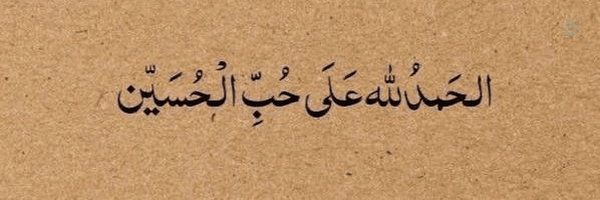 الحَمدُلله عَلَى حُبِّ الْحُسَيّن